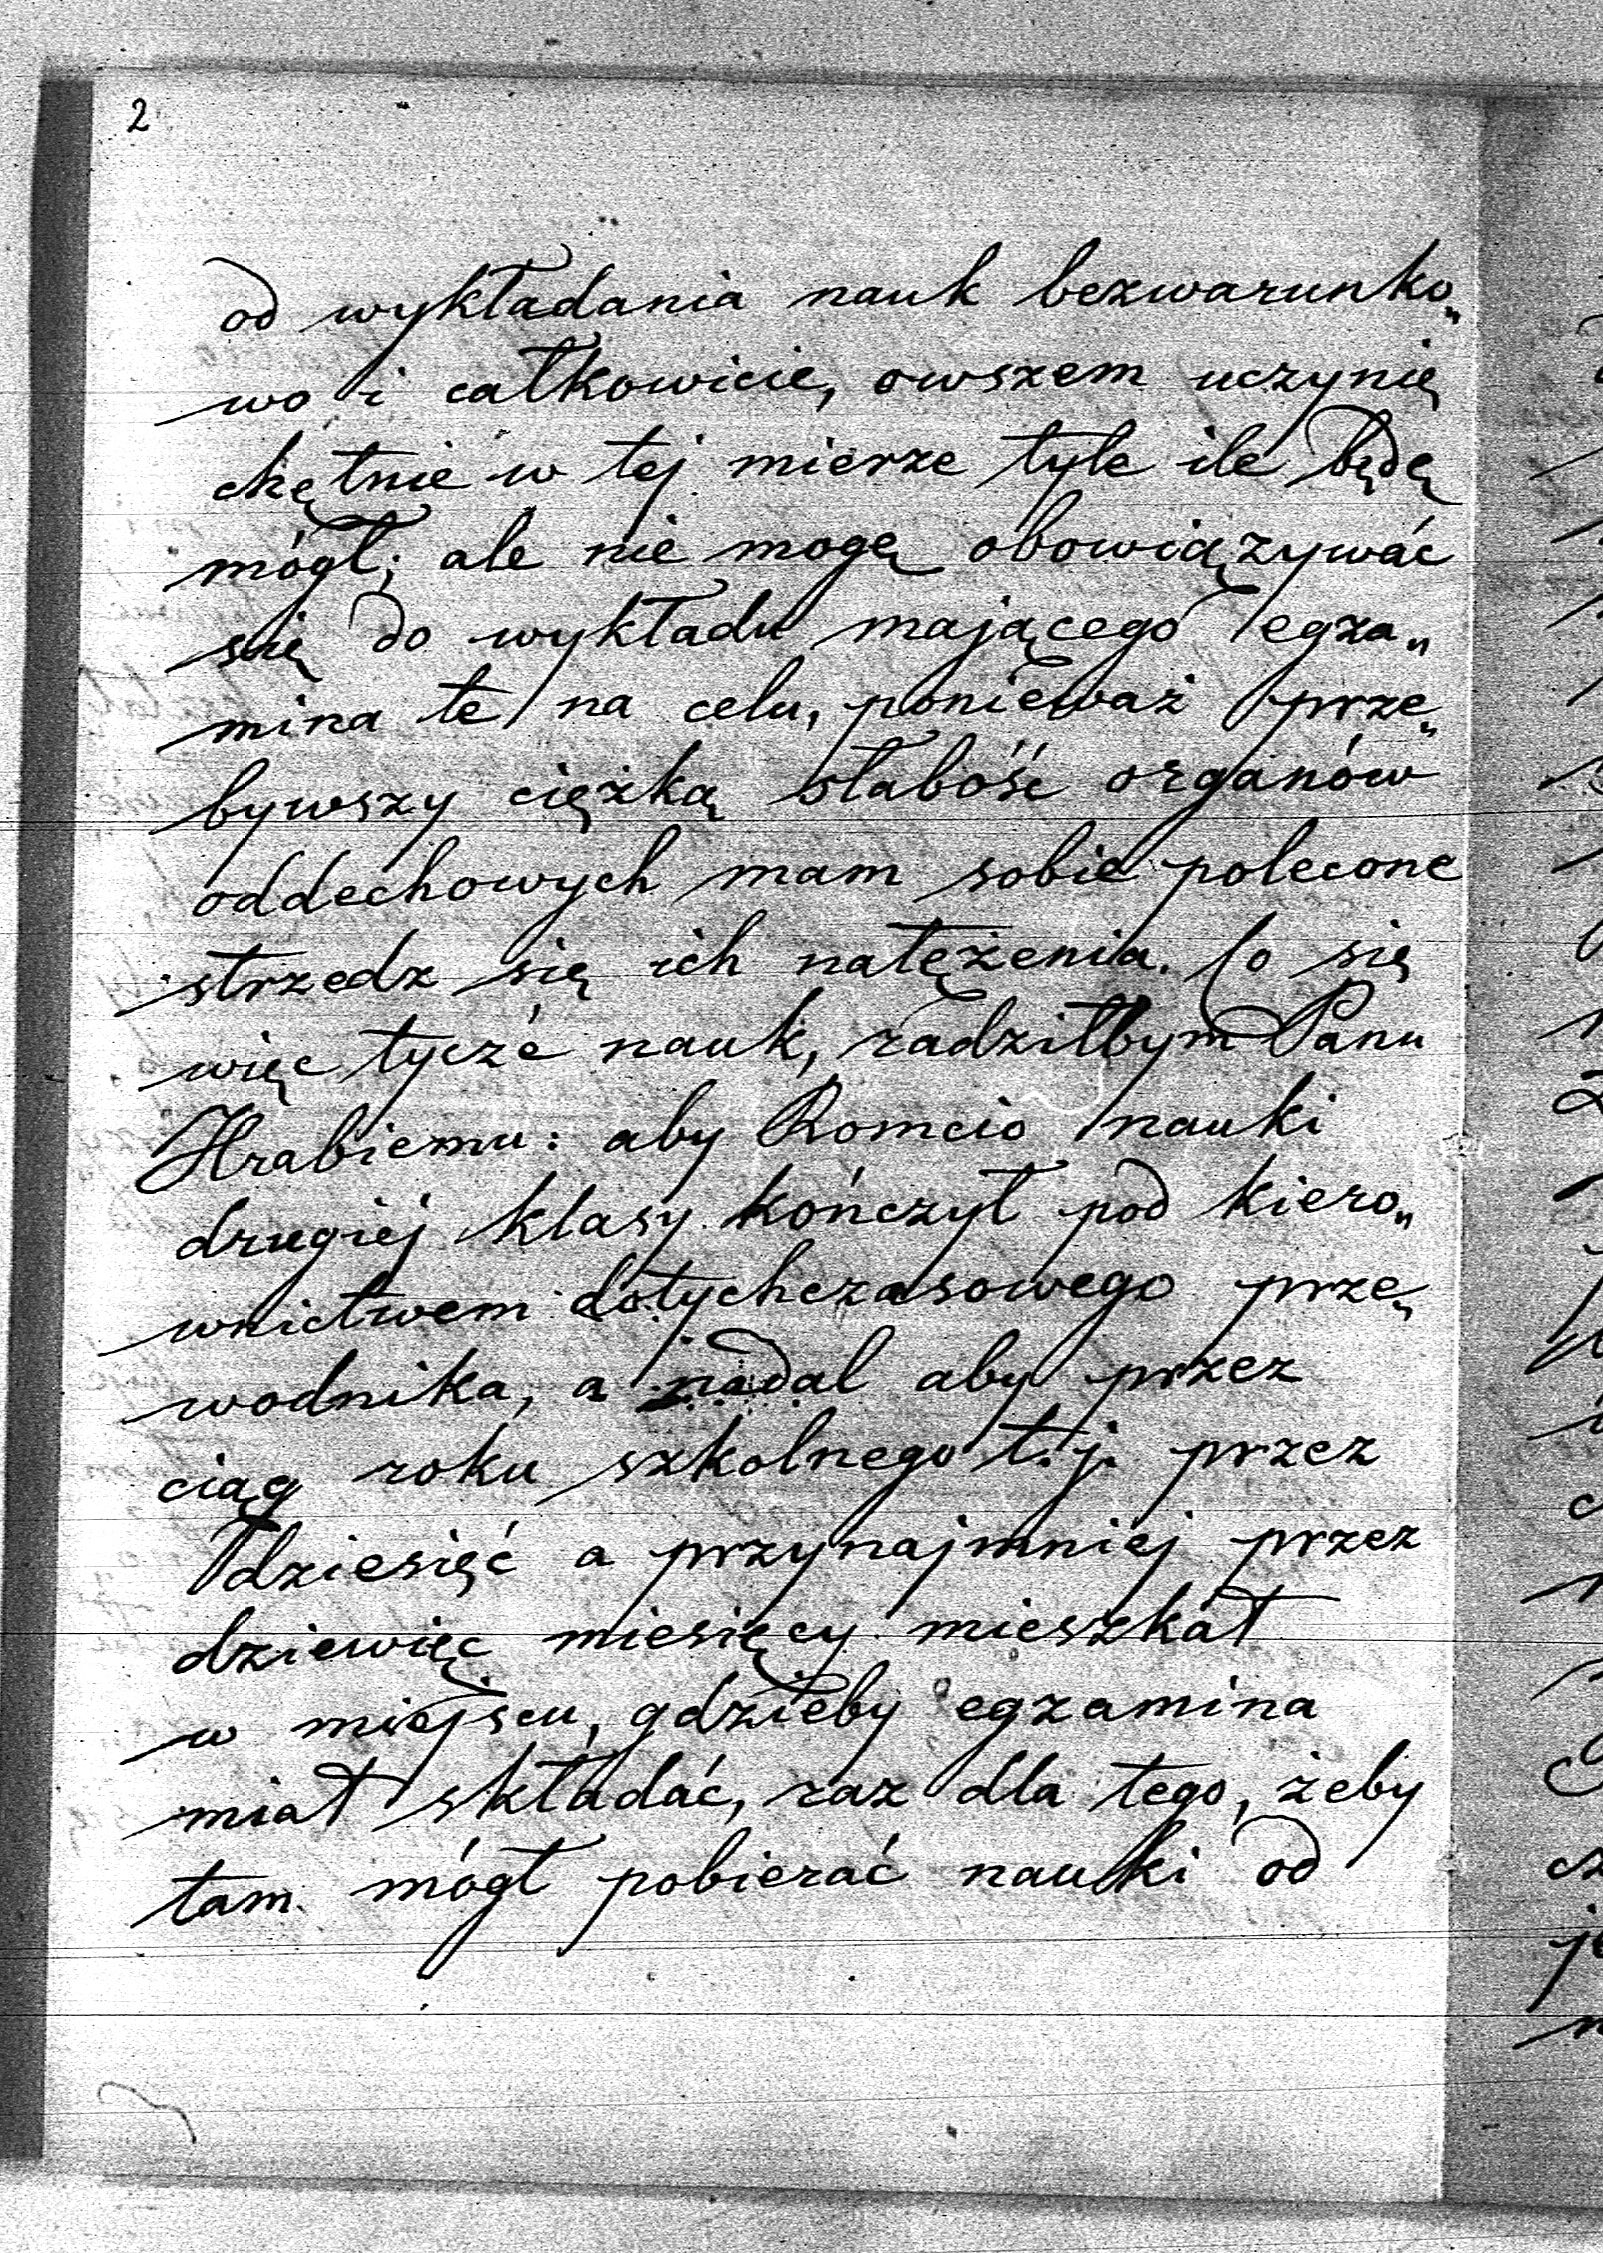 2
od wykładania nauk bezwarunko„
wo i całkowicie, owszem uczynię
chętnie w tej mierze tyle ile będę
mógł; ale nie mogę obowiązywać
się do wykładu mającego egza„
mina te na celu, ponieważ prze„
bywszy ciężką słabość organów
oddechowych mam sobie polecone
strzedz się ich natężenia. Co się
więc tyczé nauk, radziłbym Panu
Hrabiemu: aby Romcio nauki
drugiej klasy kończył pod kiero„
wnictwem dotychczasowego prze„
wodnika, a nadal aby przez
ciąg roku szkolnego t. j. przez
dziesięć a przynajmniej przez
dziewięć miesięcy mieszkał
w miejscu, gdzieby egzamina
miał składać, raz dla tego, żeby
tam mógł pobierać nauki od